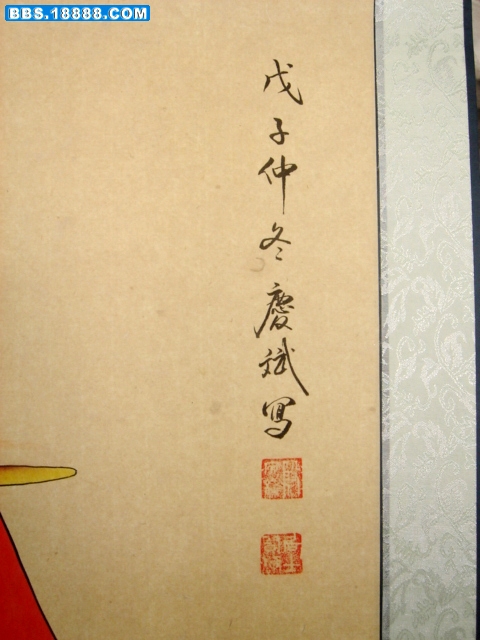 BBS.18888.COM
戊子仲冬慶斌寫